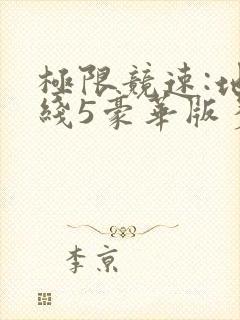 極限競速:地
綫5豪華版
李京